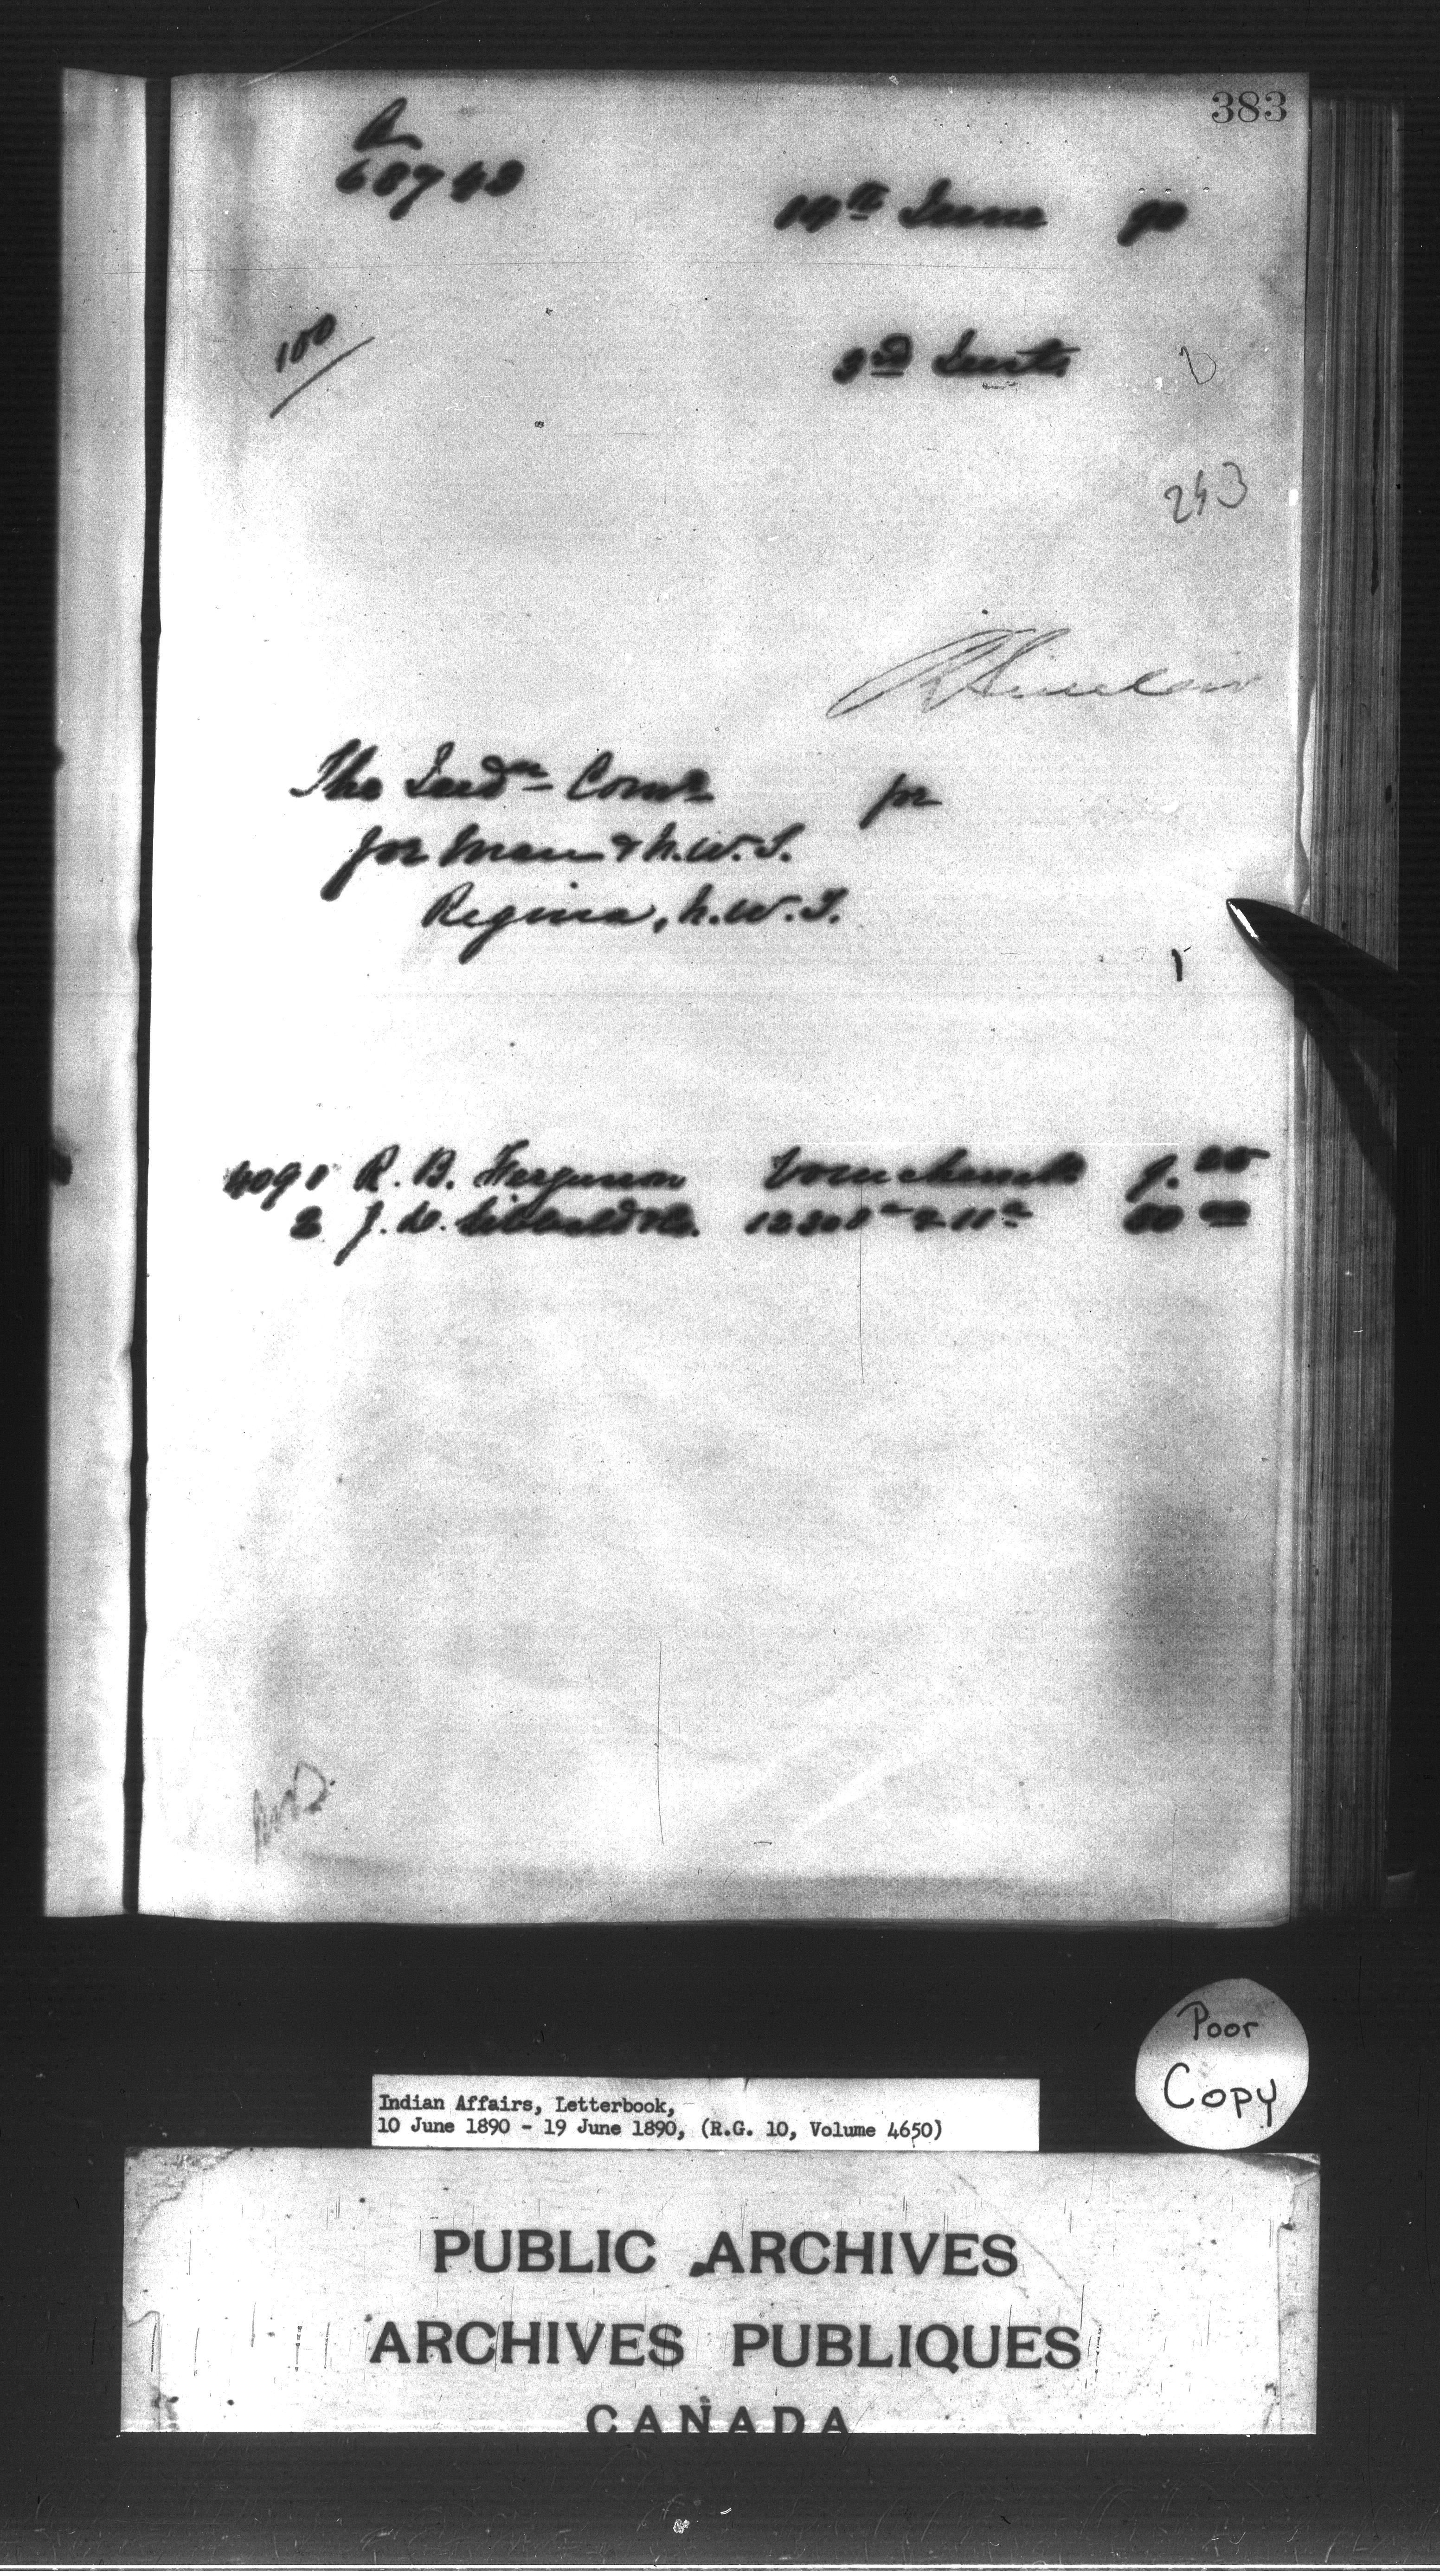 383
A
68743
14th June 90
100
3rd Insts.
D
243
R Sinclair
The Indn Comr
for
for Man & N.W.T.
Regina, N.W.T.
4091 R. B. Ferguson 7.25
2 J. D. Sibbald & Co. 60 00
Poor
Copy
Indian Affairs, Letterbook,
10 June 1890 - 19 June 1890, (R.G. 10, Volume 4650)
PUBLIC ARCHIVES
ARCHIVES PUBLIQUES
CANADA